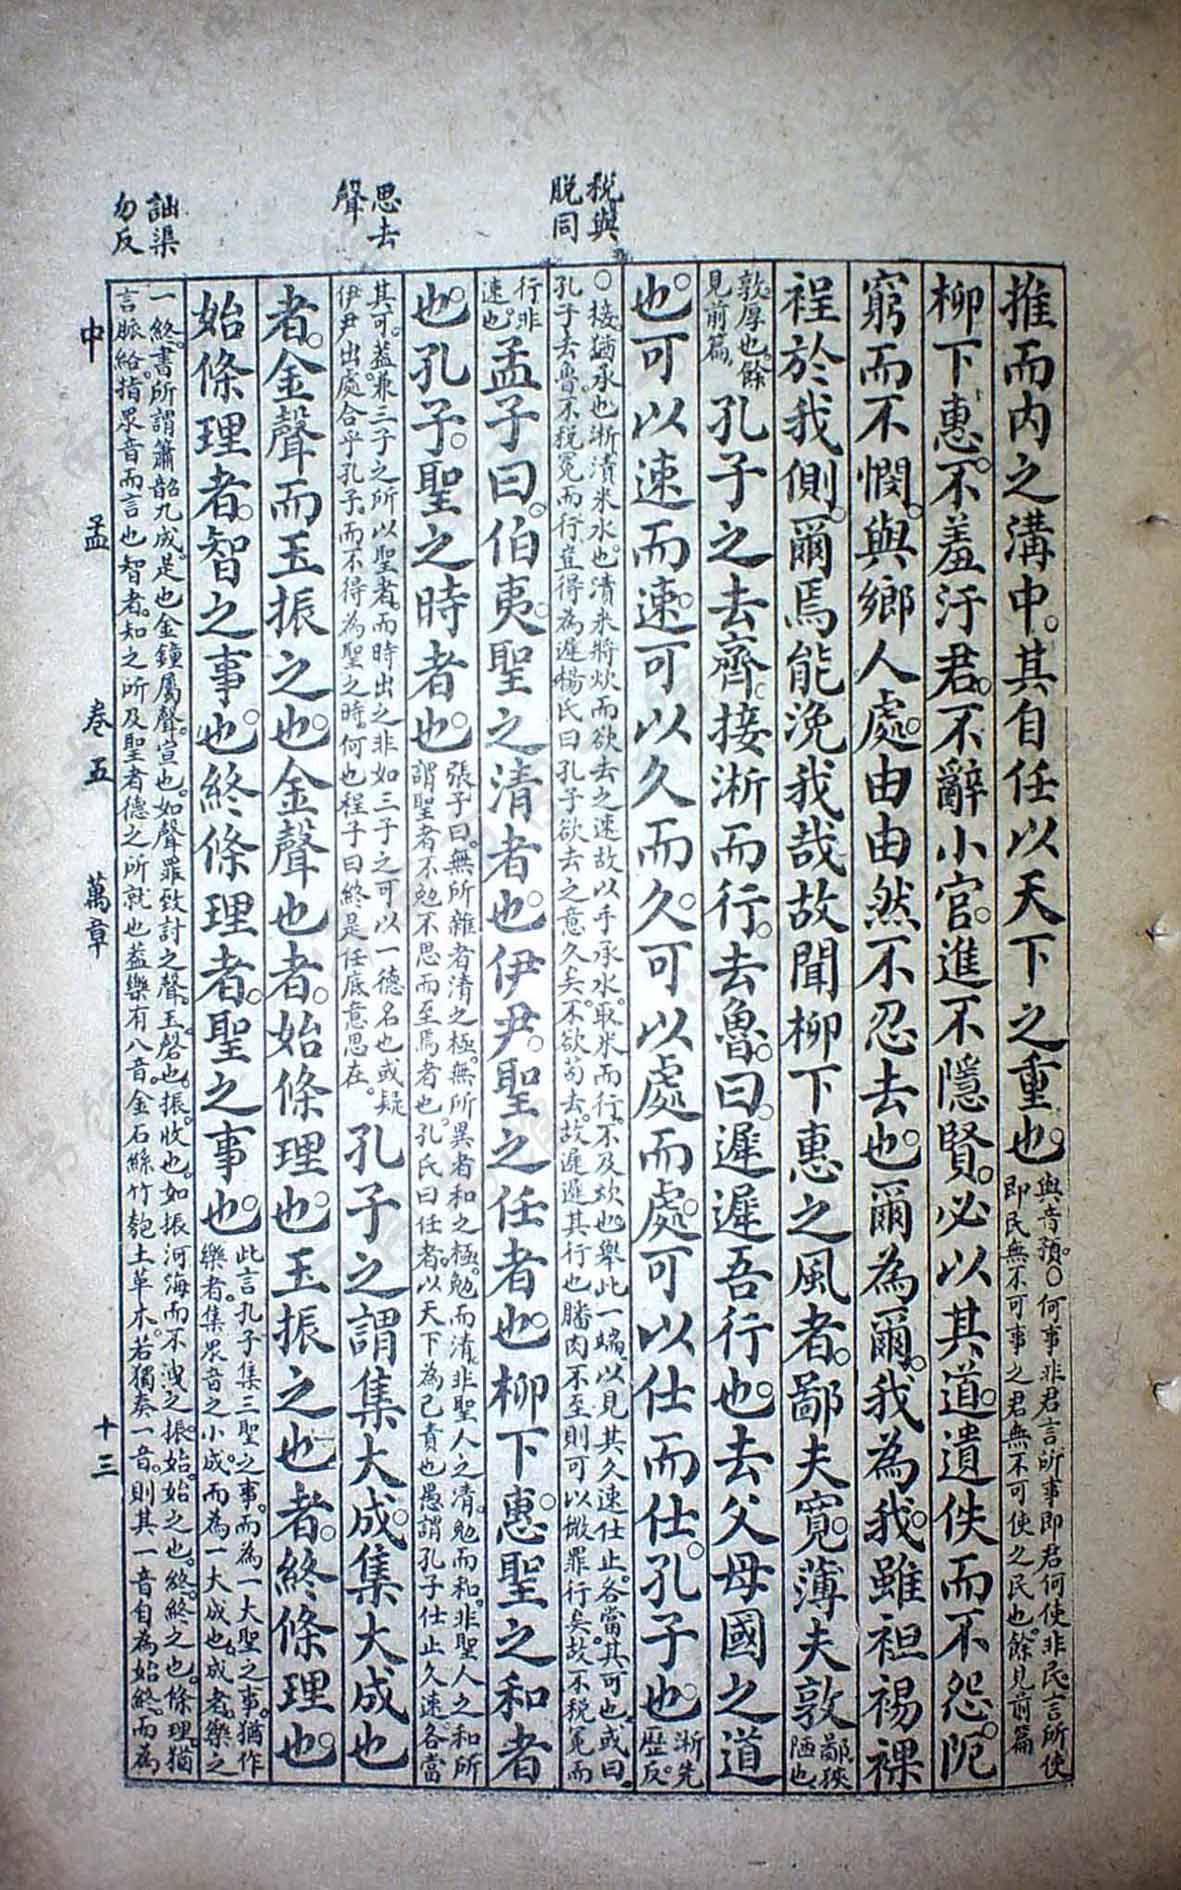 稅與
脫同
思去
聲
詘渠
勿反
推而內之溝中。其自任以天下之重也。
與音預。○何事非君言所事即君何使非民言所使
即民無不可事之君無不可使之民也。餘見前篇
柳下惠。不羞汙君。不辭小官。進不隱賢。必以其道。遺佚而不怨。阨
窮而不憫。與鄉人處。由由然不忍去也。爾為爾。我為我。雖袒裼裸
裎於我側。爾焉能浼我哉故聞柳下惠之風者。鄙夫寬。薄夫敦
鄙狹
陋也
敦厚也。餘
見前篇。
孔子之去齊。接淅而行。去魯。曰。遲遲吾行也。去父母國之道
也。可以速而速。可以久而久。可以處而處。可以仕而仕。孔子也。
淅先
歷反。
○接。猶承也淅漬米水也。漬米將炊而欲去之速故以手承水。取米而行。不及炊也。舉此一端。以見其久速仕止。各當其可也。或曰。
孔子去魯。不稅冕而行豈得為遲楊氏曰孔子欲去之意久矣。不欲苟去。故遲遲其行也膰肉不至則可以微罪行矣。故不稅冕而
行非
速也。
孟子曰。伯夷。聖之清者也。伊尹。聖之任者也。柳下惠。聖之和者
也。孔子。聖之時者也。
張子曰。無所雜者清之極。無所異者和之極。勉而清。非聖人之清。勉而和。非聖人之和所
謂聖者不勉不思而至焉者也。孔氏曰任者。以天下為己責也愚謂孔子仕止久速。各當
其可。蓋兼三子之所以聖者。而時出之非如三子之可以一德名也或疑
伊尹出處。合乎孔子。而不得為聖之時何也程子曰終是任底意思在。
孔子之謂集大成。集大成也
者。金聲而玉振之也。金聲也者。始條理也。玉振之也者。終條理也。
始條理者。智之事也。終條理者。聖之事也。
此言孔子集三聖之事。而為一大聖之事。猶作
樂者。集眾音之小成。而為一大成也。成者。樂之
一終。書所謂簫韶九成。是也金鐘屬聲。宣也。如聲罪致討之聲。玉磬也。振。收也。如振河海而不洩之振。始。始之也。終。終之也。條理猶
言脈絡。指眾音而言也智者。知之所及聖者德之所就也蓋樂有八音。金石絲竹匏土革木。若獨奏一音。則其一音自為始終。而為
中 孟 卷五 萬章 十三